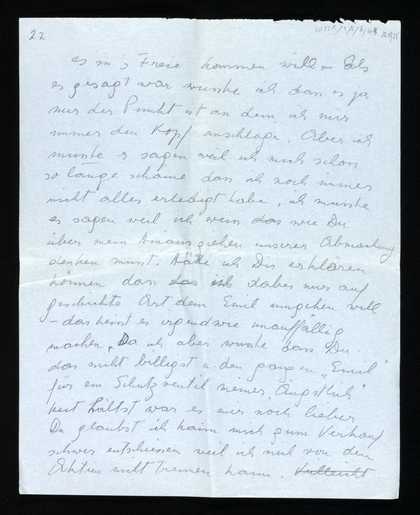 22
es in's Freie kommen will – Als
es gesagt war wusste ich dass es ja
nur der Punkt ist an dem ich mir
immer den Kopf anschlage. Aber ich
musste es sagen weil ich mich schon
so lange schäme dass ich noch immer
nicht alles erledigt habe, ich musste
es sagen weil ich weiss dass wie Du
über mein hinausgehen unserer Abmachung
denken musst. Hätte ich Dir erklären
können dass ich dabei nur auf
geschickte Art dem Emil umgehen will
– das heisst es irgendwie unauffällig
machen. Da ich aber wusste dass Du
das nicht billigst u. den ganzen "Emil"
für ein Schutzventil meiner Ängstlich-
keit hältst war es mir noch lieber
Du glaubst ich kann mich zum Verkauf
schwer entschliessen weil ich mich von den
Aktien nicht trennen kann. Vielleicht